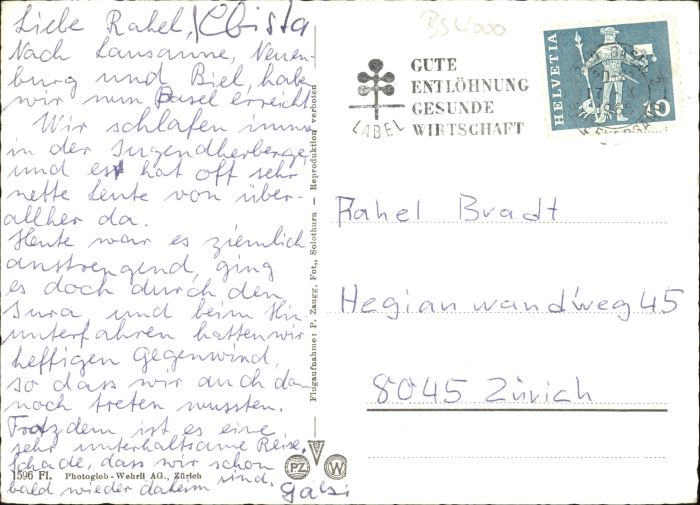 Liebe Rahel, Christa
Nach Lausanne, Neuen-
burg und Biel, habe
wir nun Basel erreicht
Wir schlafen immer
in der Jugendherberge,
und es hat oft sehr
nette Leute von über-
allher da.
Heute war es ziemlich
anstrengend, ging
es doch durch den
Jura, und beim Hin-
unterfahren hatten wir
heftigen Gegenwind,
so dass wir auch dann
noch treten mussten.
Trotzdem ist es eine
sehr unterhaltsame Reise.
Schade, dass wir schon
bald wieder daheim sind. Gabi
1596 Fl. Photoglob-Wehrli AG., Zürich
PZ
W
Flugaufnahme: P. Zaugg, Fot., Solothurn - Reproduktion verboten
BS 4000
GUTE
ENTLÖHNUNG
GESUNDE
WIRTSCHAFT
LABEL
HELVETIA
10
Rahel Bradt
Hegianwandweg 45
8045 Zürich